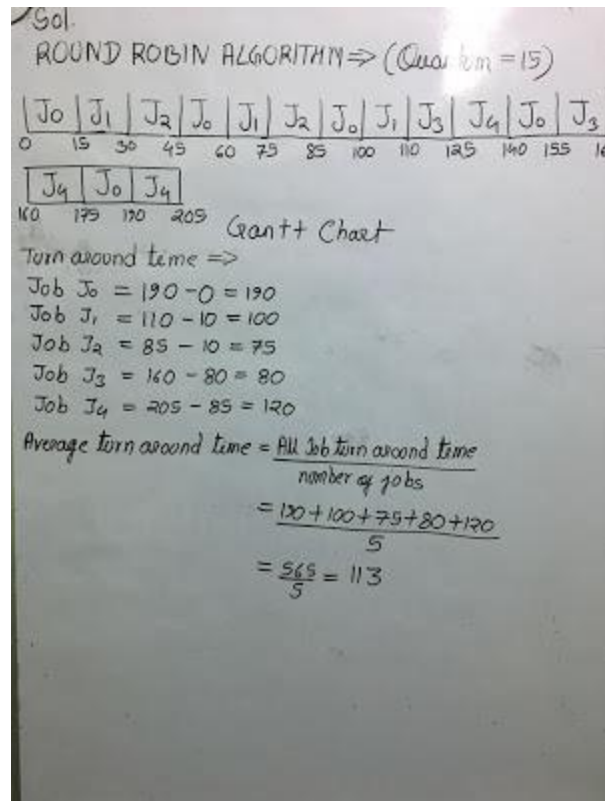 Sol.
ROUND ROBIN ALGORITHM => (Quantum = 15)
J0 J1 J2 J0 J1 J2 J0 J1 J3 J4 J0 J3
0 15 30 45 60 75 85 100 110 125 140 155
J4 J0 J4
160 175 190 205 Gantt Chart
Turn around time =>
Job J0 = 190 - 0 = 190
Job J1 = 110 - 10 = 100
Job J2 = 85 - 10 = 75
Job J3 = 160 - 80 = 80
Job J4 = 205 - 85 = 120
Average turn around time = All Job turn around time
number of jobs
= 190 + 100 + 75 + 80 + 120
5
= 565
5
= 113